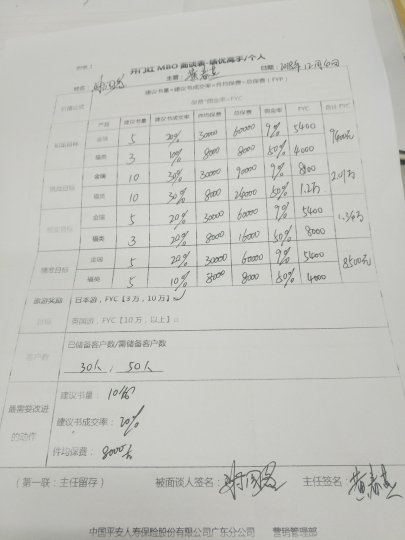 开门红 MBO 面谈表-绩优高手/个人
主管：黄春喜 日期：2018年12月6日
价值公式 建议书量×建议书成交率×件均保费=总保费（FYP）
保费*佣金率=FYC
产品 建议书量 建议书成交率 件均保费 总保费 佣金率 FYC 合计FYC
金瑞 5 20% 30000 60000 9% 5400 9400元
福类 3 10% 8000 8000 50% 4000
挑战目标 金瑞 10 30% 30000 90000 9% 8100 2.01万
福类 10 30% 8000 24000 50% 1.2万
金瑞 5 20% 30000 60000 9% 5400 1.34万
福类 3 20% 8000 16000 50% 8000
目标 金瑞 5 20% 30000 60000 9% 5400 8500元
福类 5 10% 8000 8000 50% 4000
旅游奖励 日本游，FYC【3万，10万】
目标 英国游，FYC【10万，以上】
客户数 已储备客户数/需储备客户数
30人，50人
建议书量：10份
最需要改进 建议书成交率：20%
的动作
件均保费：8000元
（第一联：主任留存） 被面谈人签名： 主任签名：黄春喜
中国平安人寿保险股份有限公司广东分公司 营销管理部